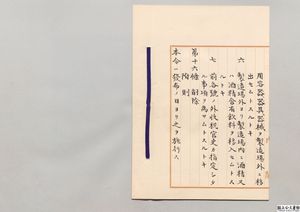 用容器器具器械ヲ製造場外ニ移
出セムトスルトキ
六 製造場外ヨリ製造場内ニ酒精又
ハ酒精含有飲料ヲ移入セムトス
ルトキ
七 前各號ノ外收税官吏ノ指定シタ
ル事項ヲ為サムトスルトキ
第十六條 削除
附則
本令ハ發布ノ日ヨリ之ヲ施行ス